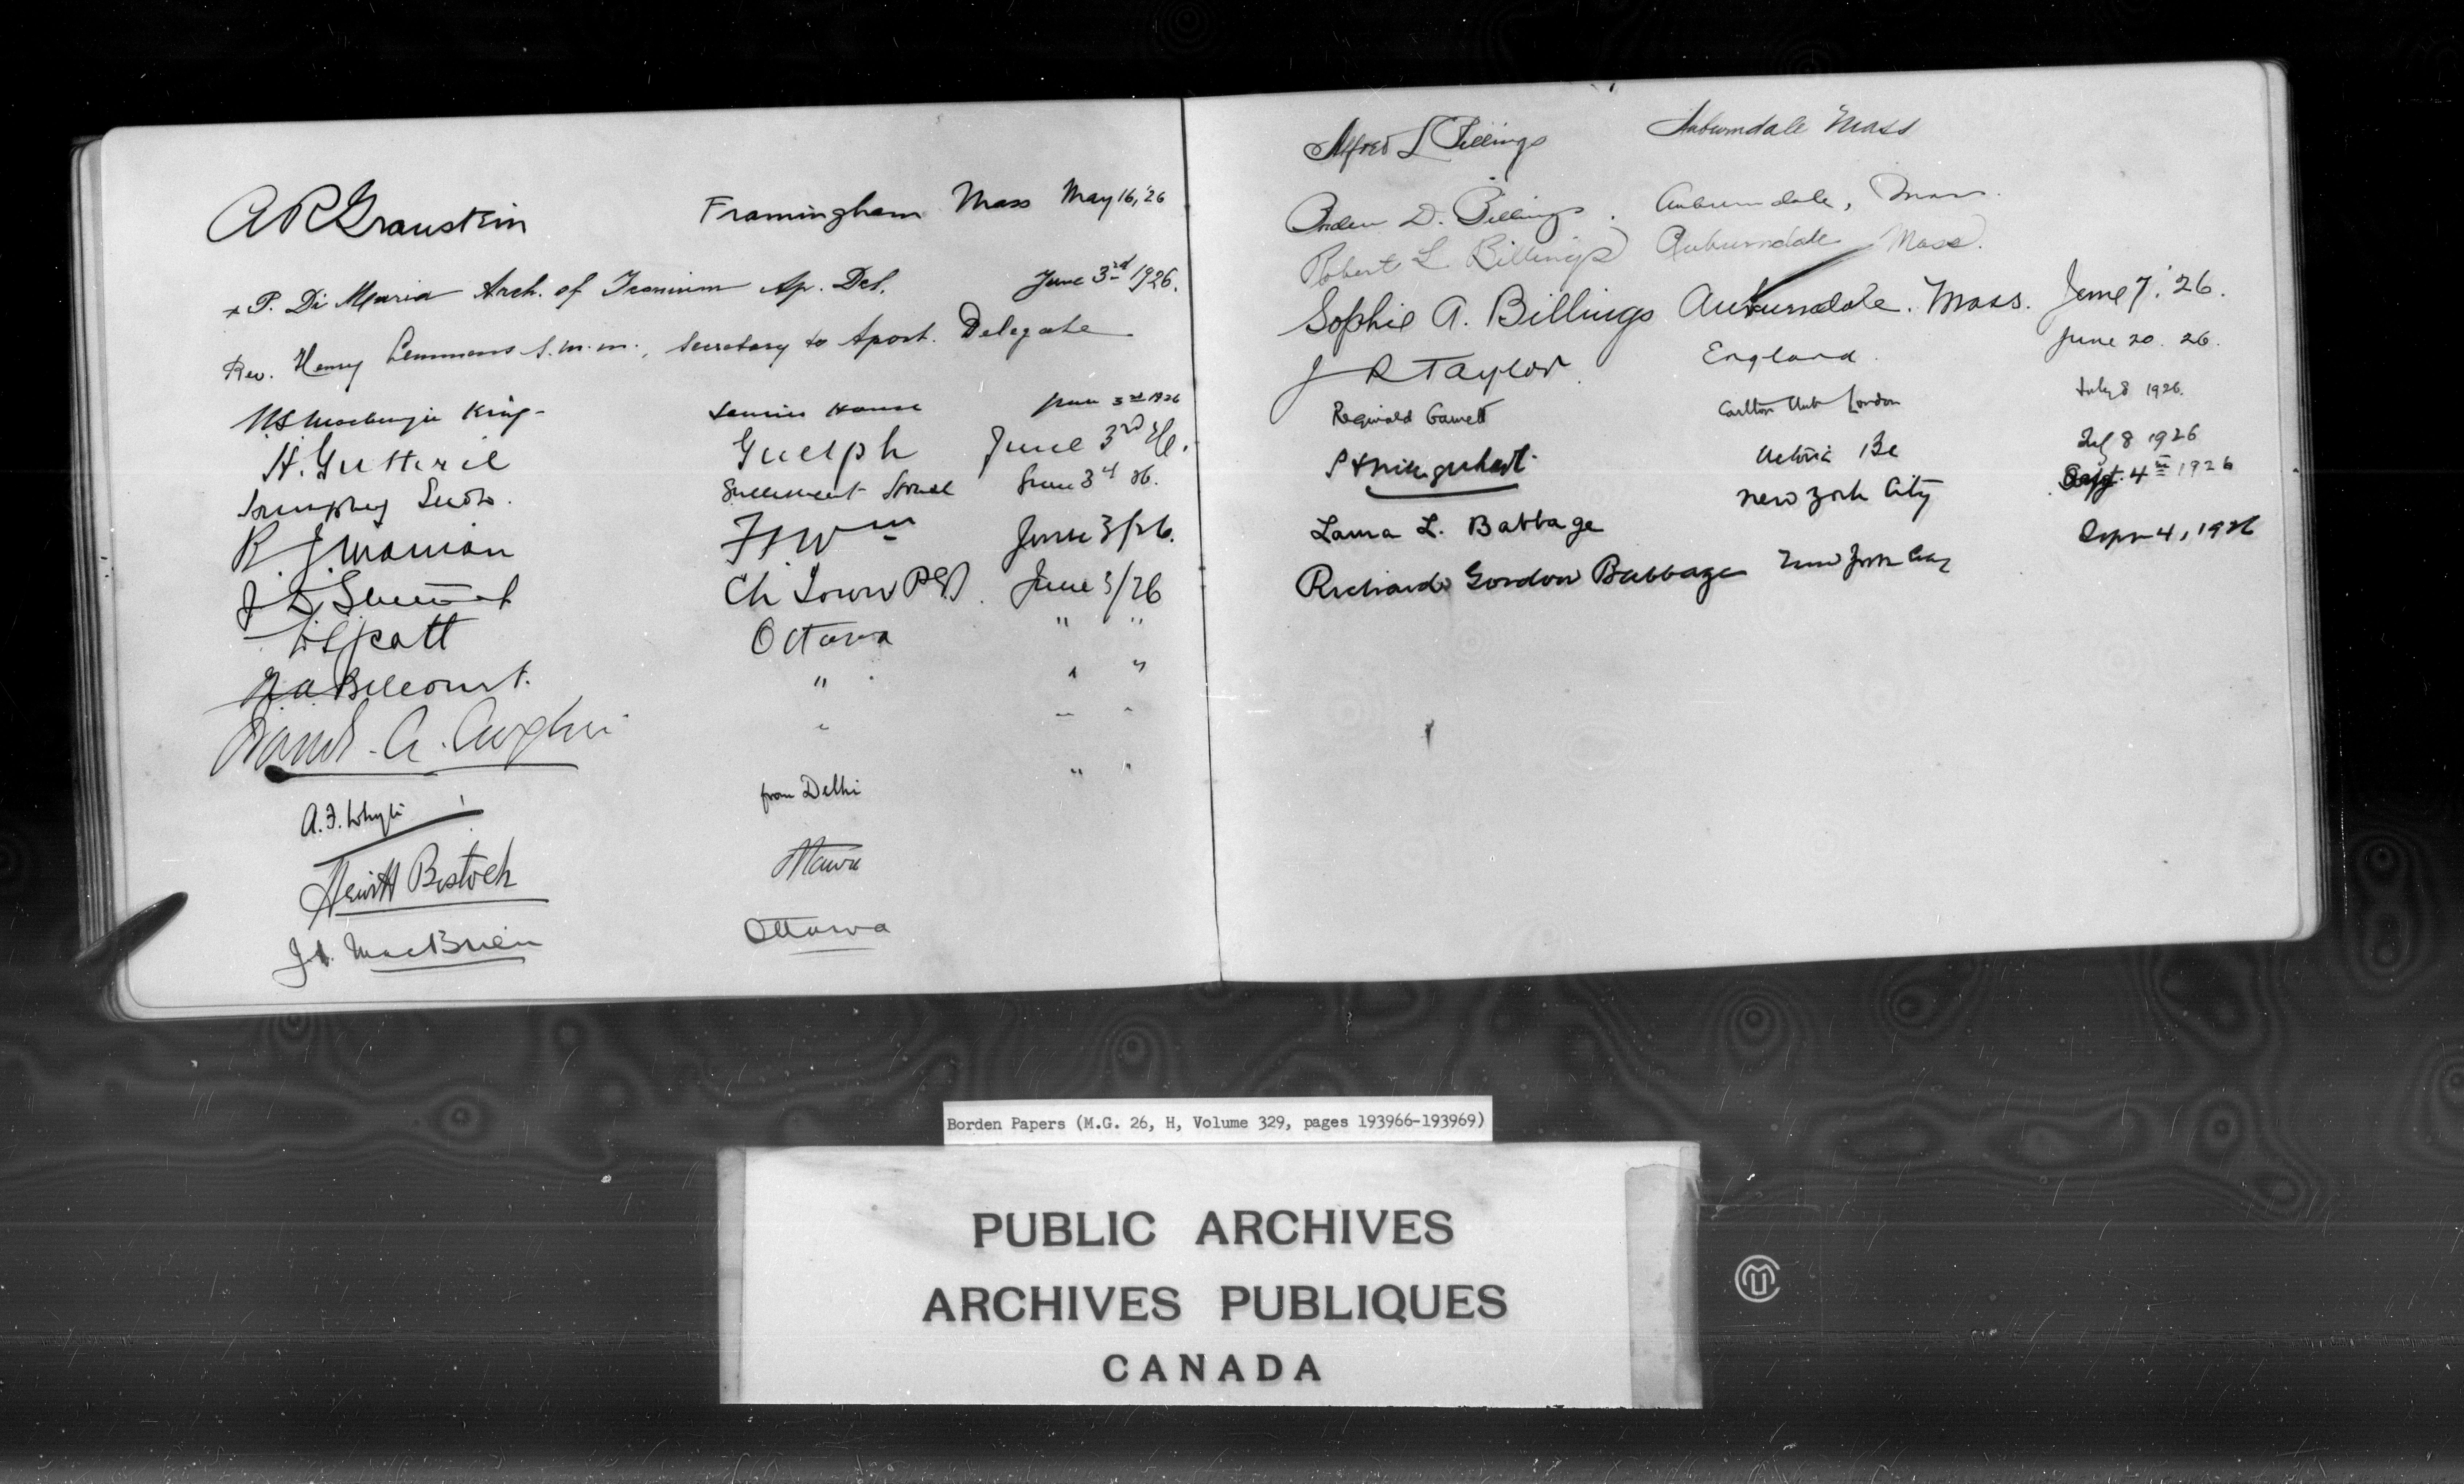 A R Graustein Framingham Mass May 16, '26
+ P. Di Maria Arch. of Iconium Ap. Del. June 3rd 1926.
Rev. Henry Lemmens s.m.m., secretary to Apost. Delegate
W L Mackenzie King - Laurier House June 3rd 1926
H. Guthrie Guelph June 3rd 26.
June 3d 26.
R. J. Manion Ft Wm June 3/26.
Ch Town P.E.I. June 3/26
Ottawa " "
N. A. Belcourt. " " "
A. F. Whyte from Delhi " "
Hewitt Bostock Ottawa
J. H. MacBrien Ottawa
Alfred L Billings Auburndale Mass
Borden D. Billings. Auburndale, Mass.
Robert L Billings Auburndale Mass.
Sophie A. Billings Auburndale. Mass. June 7. '26.
J R Taylor England. June 20. 26.
Reginald Garnett Carlton Club London July 8 1926.
Victoria BC July 8 1926
Laura L. Babbage New York City Sept. 4th 1926
Richard Gordon Babbage New York City Sept 4, 1926
Borden Papers (M.G. 26, H, Volume 329, pages 193966-193969)
PUBLIC ARCHIVES
ARCHIVES PUBLIQUES
CANADA